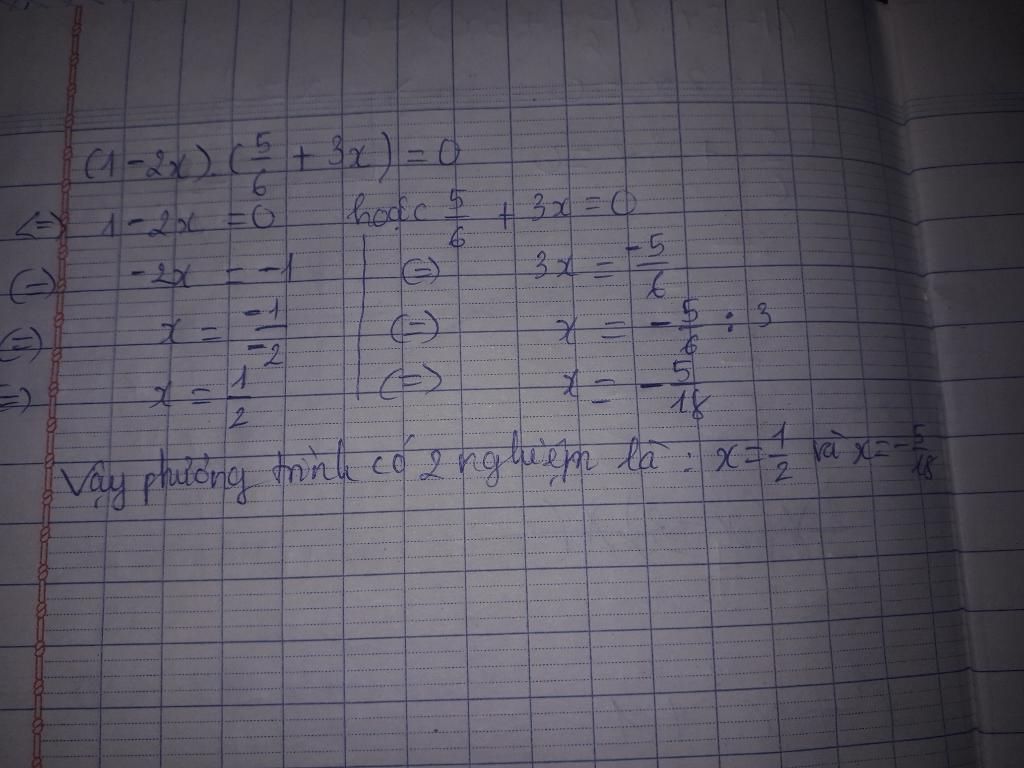 (1 - 2x).(5/6 + 3x) = 0
<=> 1 - 2x = 0 hoặc 5/6 + 3x = 0
(=) -2x = -1 | (=) 3x = -5/6
(=) x = -1/-2 | (=) x = -5/6 : 3
=) x = 1/2 | (=) x = -5/18
Vậy phương trình có 2 nghiệm là : x = 1/2 và x = -5/18